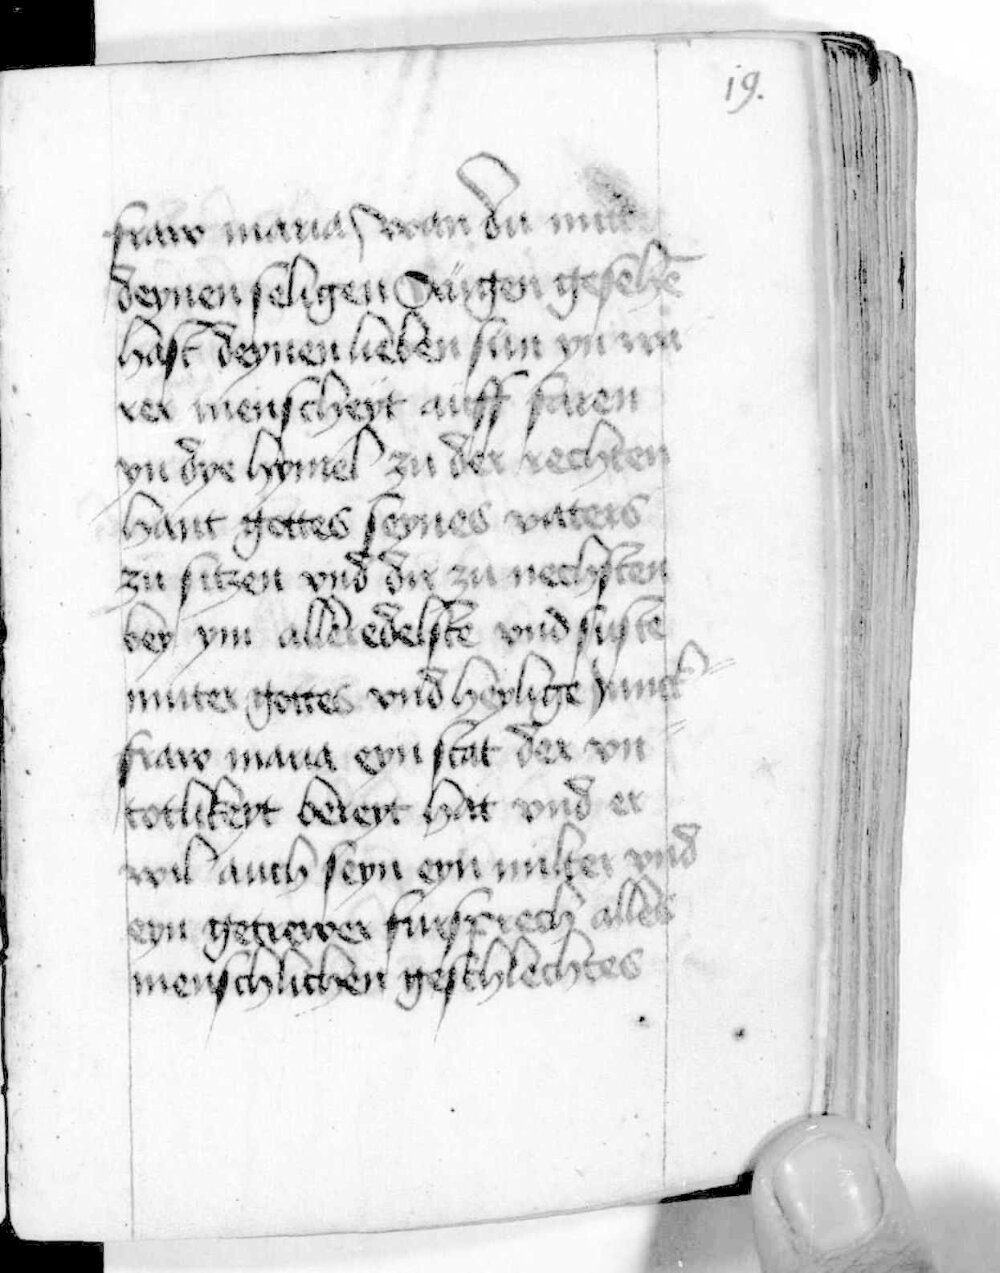 19.
fraw maria wan du mit
deynen seligen augen gesehē
hast deynen lieben sun yn
rer menscheyt auff faren
yn dye hymel zu der rechten
hant gottes seynes vaters
zu sitzen vnd dir zu nechsten
bey ym aller edelste vnd suste
muter gottes vnd heylige junck
fraw maria eyn stat der vn
totlikeyt bereyt hat vnd er
wil auch seyn eyn milter vnd
eyn getrewer fursprech alles
menschlichen geschlechtes